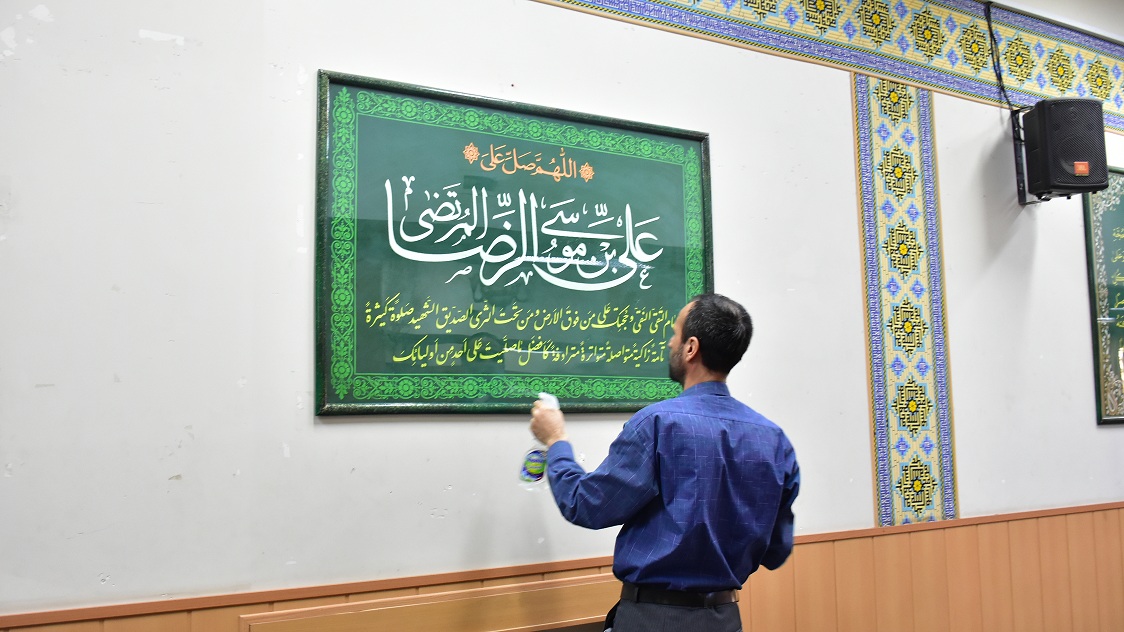 اللّٰهُمَّ صَلِّ عَلىٰ
عَلیِّ بْنِ مُوسَی الرِّضَا المُرتَضى
التَّقیِّ النَّقیِّ وَحُجَّتِکَ عَلى مَن فَوقَ الأرضِ وَمَن تَحْتَ الثَّرى الصِدّیقِ الشَّهیدِ صَلوٰةً کَثیرَةً
تآمَّةً زاکِیَةً مُتَواصِلَةً مُتَواتِرَةً مُتَرادِفَةً کَأفضَلِ ما صَلَّیتَ عَلى أحَدٍ مِن أولیائِکَ